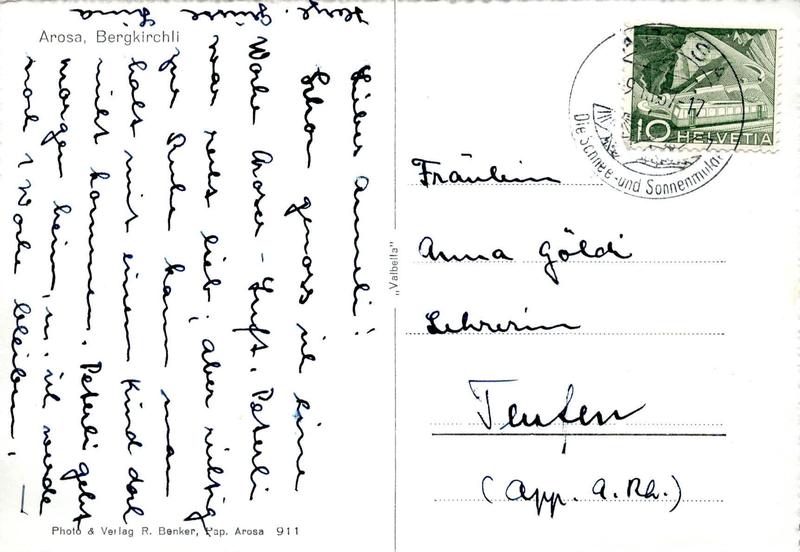 Arosa, Bergkirchli
Liebes Anneli!
Schon genoss ich eine
Woche Aroser-Luft. Peterli
war recht lieb, aber richtig
zur Ruhe kann man
halt mit einem Kind doch
nicht kommen. Peterli geht
morgen heim, u. ich werde
noch 1 Woche bleiben.
Herzl. Grüsse
Lina
Photo & Verlag R. Benker, Pap. Arosa 911
„Valbella"
10 HELVETIA
Die Schnee- und Sonnenmulde
Fräulein
Anna Göldi
Lehrerin
Teufen
(App. A. Rh.)